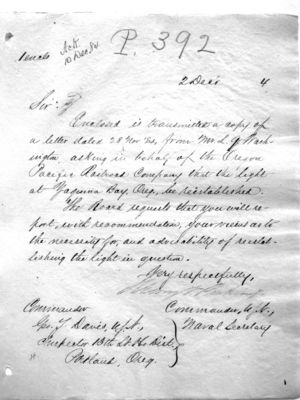 P. 392
1 encl.
Ack.
10 Dec 84
2 Dec 4
Sir:
Enclosed is transmitted a copy of
a letter dated 28 Nov '84, from Mr L. Q. Wash-
ington, asking in behalf of the Oregon
Pacific Railroad Company that the light
at Yaquina Bay, Oreg., be reestablished.
The Board requests that you will re-
port, with recommendation, your views as to
the necessity for, and advisability of reestab-
lishing the light in question.
Very respectfully,
Commander Commander, U.S.N.,
Geo. T. Davis, U.S.N., Naval Secretary
Inspector 13th Lt. Ho. Dist.
Portland, Oreg.